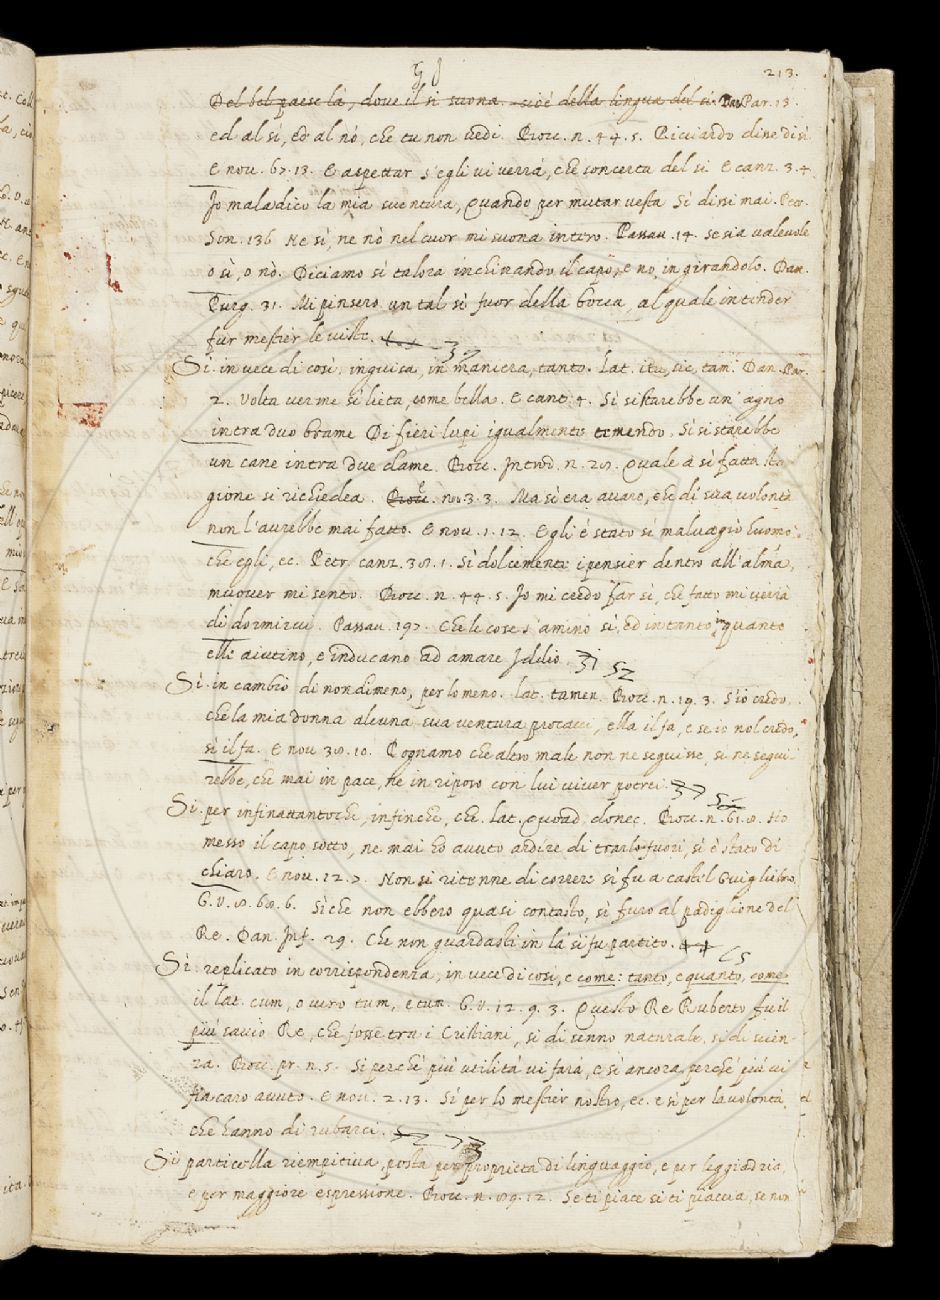 213.
Del bel paese là, dove il sì suona. cioè della lingua del sì. Dan Par. 13
ed al sì, ed al nò, che tu non vedi. Bocc. n. 44. 5. Ricciardo dine di sì
E nov. 67. 13. E aspettar s'egli vi verrà, che son certa del sì. E canz. 3. 4.
Io maladico la mia sventura, Quando per mutar vesta Sì dissi mai. Petr.
Son. 136 Ne sì, ne nò nel cuor mi suona intero. Passav. 14. Se sia valevole
o sì, o nò. Diciamo sì talora inchinando il capo, e no, in girandolo. Dan.
Purg. 31. Mi pensero un tal sì fuor della bocca, al quale intender
fur mestier le viste.
Sì. in vece di così, in guisa, in maniera, tanto. lat. ita, sic, tam. Dan. Par.
2. Volta ver me sì lieta, come bella. E cant. 4. Sì si starebbe un agno
intra duo brame Di fieri lupi igualmente temendo. Sì si starebbe
un cane intra due dame. Bocc. Introd. n. 20. Quale a sì fatta sta
gione si richiedea. Bocc. nov. 3. 3. Ma sì era avaro, che di sua volontà
non l'avrebbe mai fatto. E nov. 1. 12. Egli è stato sì malvagio huomo
che egli, ec. Petr. canz. 30. 1. Sì dolcemente i pensier dentro all'alma,
muover mi sento. Bocc. n. 44. 5. Io mi credo far sì, che fatto mi verrà
di dormirvi. Passav. 197. Che le cose s'amino sì, ed in tanto in quanto
elle aiutino, e inducano ad amare Iddio. 52
Sì. in cambio di nondimeno, per lo meno. lat. tamen. Bocc. n. 19. 3. S'io credo,
che la mia donna alcuna sua ventura procacci, ella il fa, e se io nol credo,
sì il fa. E nov. 30. 10. Pognamo che altro male non ne seguisse, si ne segui
rebbe, che mai in pace, ne in riposo con lui viver potrei.
Sì. per infinattantoche, infinche, che. lat. Quoad, donec. Bocc. n. 61. 8. Ho
messo il capo sotto, ne mai hò avuto ardire di trarlo fuori, sì è stato di
chiaro. E nov. 12. 7. Non si ritenne di correre sì fu a castel Guiglielmo.
G. V. 8. 68. 6. Sì che non ebbero quasi contasto, sì furo al padiglione del
Re. Dan. Inf. 29. Che non guardasti in là sì fu partito.
Sì. replicato in corrispondenza, in vece di così, e come: tanto, e quanto, come
il lat. cum, o vero tum, e tum. G. V. 12. 9. 3. Questo Re Ruberto fu il
più savio Re, che fosse tra i Cristiani, sì di senno naturale, sì di scien-
za. Bocc. pr. n. 5. Sì perchè più utilità vi farà, e sì ancora perchè più vi
fia caro avuto. E nov. 2. 13. Sì per lo mestier nostro, ec. e sì per la volontà
che hanno di rubarci.
Sì particella riempitiva, posta per proprietà di linguaggio, e per leggiadria,
e per maggiore espressione. Bocc. n. 89. 12. Se ti piace sì ti piaccia, se non